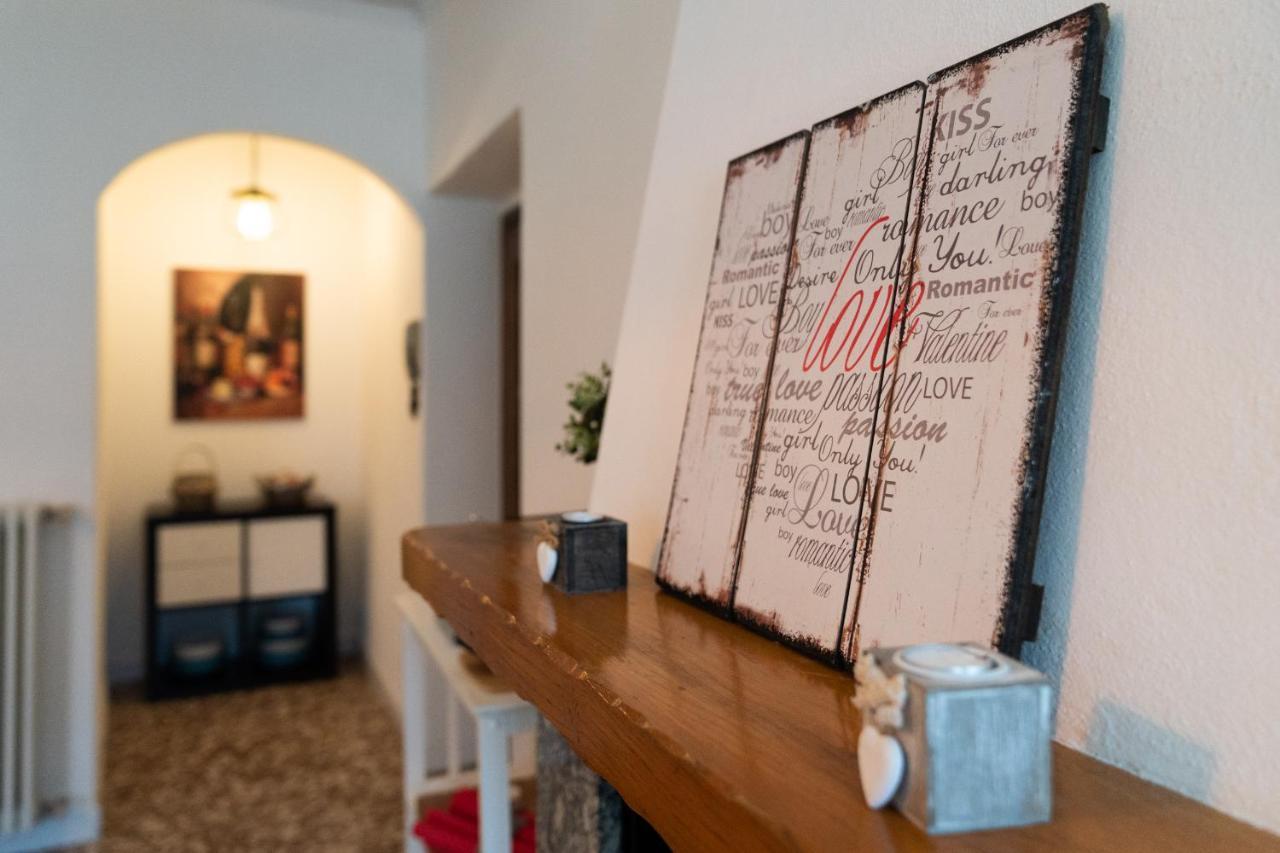 KISS
Boy girl For ever
girl darling
boy romantic romance boy
Love boy
passion For ever Only You! Love
Romantic Desire Romantic
girl LOVE Boy love For ever
KISS Valentine
For ever
Only You boy passion LOVE
true love passion
darling romance
boy
Valentine girl Only You!
LOVE boy LOVE
true love Love
girl
boy romantic
love